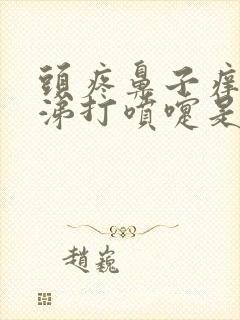 頭疼鼻子痒
涕打噴嚏是
趙巍